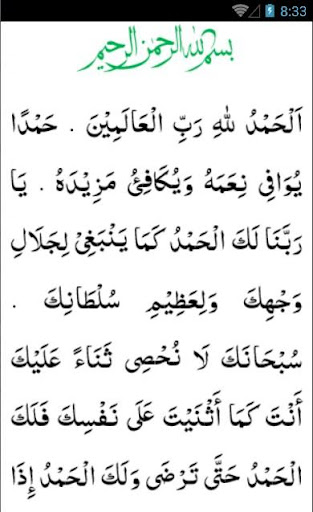 8:33
بسم الله الرحمن الرحيم
اَلْحَمْدُ لِلهِ رَبِّ الْعَالَمِيْنَ . حَمْدًا
يُوَافِى نِعَمَهُ وَيُكَافِئُ مَزِيْدَهُ . يَا
رَبَّنَا لَكَ الْحَمْدُ كَمَا يَنْبَغِيْ لِجَلَالِ
وَجْهِكَ وَلِعَظِيْمِ سُلْطَانِكَ .
سُبْحَانَكَ لَا نُحْصِى ثَنَاءً عَلَيْكَ
أَنْتَ كَمَا أَثْنَيْتَ عَلَى نَفْسِكَ فَلَكَ
الْحَمْدُ حَتَّى تَرْضَى وَلَكَ الْحَمْدُ إِذَا